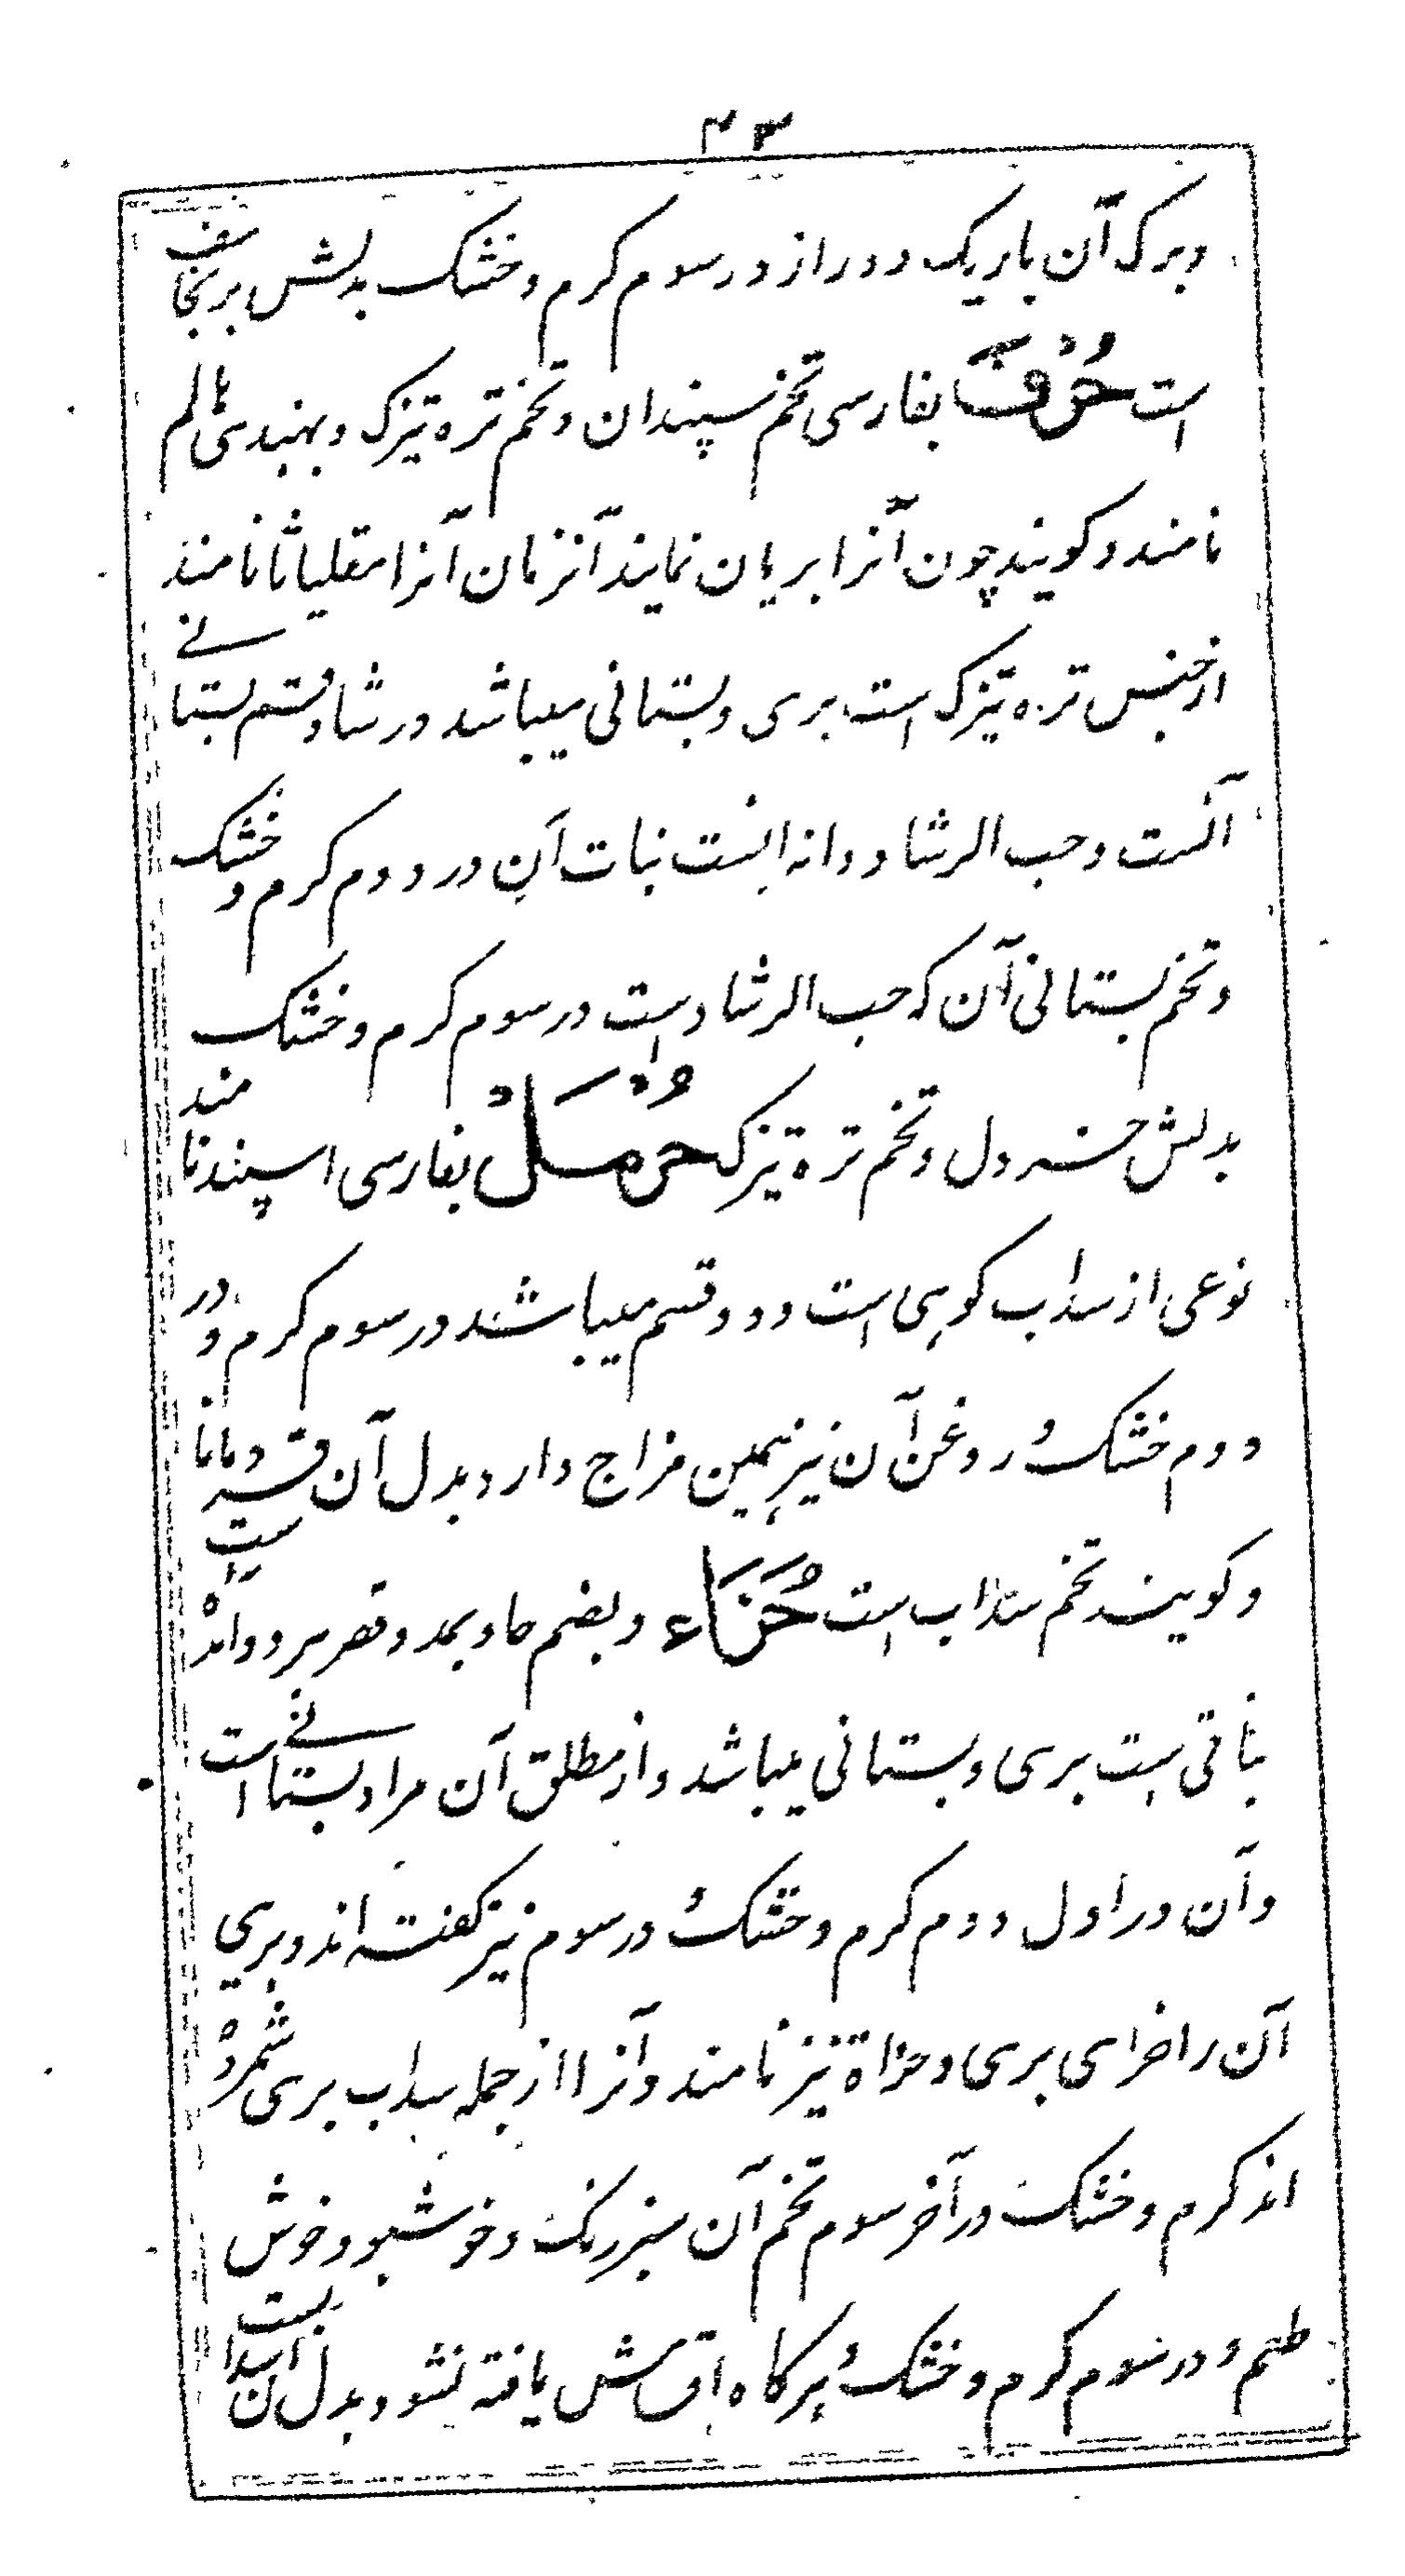 ۴۳
وبرک آن باریک ودراز در سوم کرم و خشک بدلش برنجاسف
است حُرْف بفارسی تخم سپندان وتخم تره تیزک وبهندی هالم
نامند وکویند چون آنرا بریان نمایند آنزمان آنرا مقلیاثا نامند
از جنس تره تیزک است بری وبستانی میباشد ورشاد قسم بستانے
آنست وحب الرشاد دانه اینست نبات آن در دوم کرم و خشک
وتخم بستانی آن که حب الرشاد است در سوم کرم وخشک
بدلش خردل وتخم تره تیزک حرمل بفارسی اسپند نامند
نوعی از سداب کوهی است ودو قسم میباشند در سوم کرم ودر
دوم خشک وروغن آن نیز همین مزاج دارد بدل آن قردمانا ست
وکویند تخم سداب است حُزَاء وبضم حا وبمد وقصر هر دو آمده
نباتی است بری وبستانی میباشد واز مطلق آن مراد بستانے است
وآن در اول دوم کرم وخشک ودر سوم نیز کفته اند وبری
آن را خزای بری وحزاة نیز نامند وآنرا از جمله سداب بری شمرده
اند کرم وخشک در آخر سوم تخم آن سبز رنک وخوشبو وخوش
طعم ودر سوم کرم وخشک وهرکاه یافته نشود بدل آن سداب است